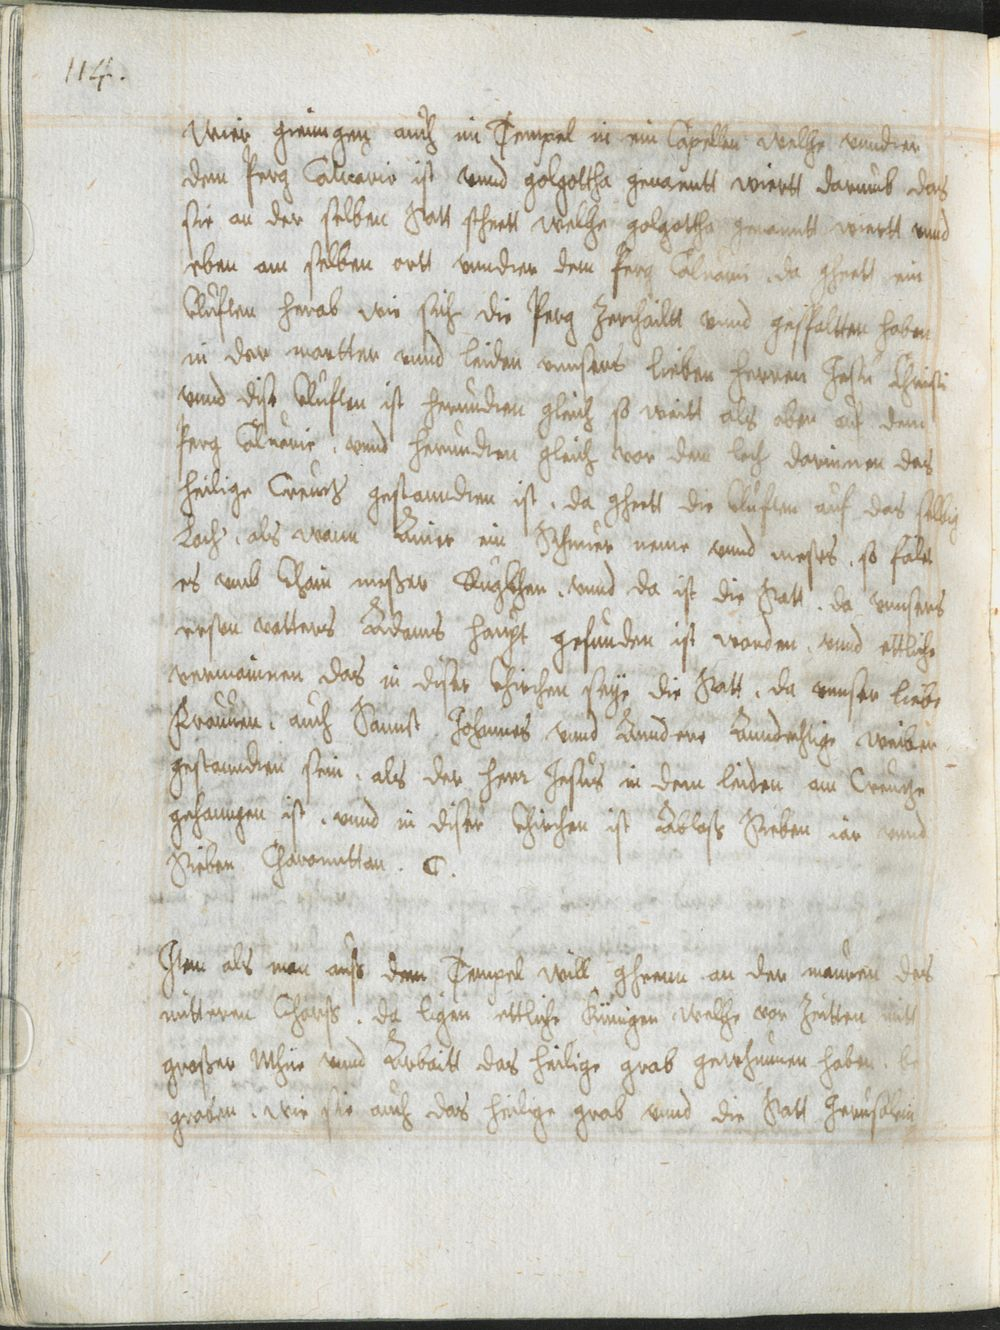 114.
Wier giemgen auch im Tempel in ein Capellen welche vnndter
dem Perg Caluarie ist vnnd golgottha genanntt wiertt darumb das
sie an der selben Statt steett welche golgottha genanntt wiertt vnnd
eben am selben ortt vnndter dem Perg Caluarie. da gheett ein
Klufften herab wie sich die Perg Zerthailtt vnnd gespaltten haben
in der martter vnnd leiden vnnsers lieben herren Jesu Christi
vnnd dise Klufften ist herundten gleich so weitt als oben auf dem
Perg Caluarie. vnnd herundten gleich vor dem loch darinnen das
heilige Creuts gestanndten ist. da gheett die Klufften auf das selbig
Loch. als wann Ainer ein Schnuer neme vnnd messes. so fält
es vmb Chain messer Rugkhen. vnnd da ist die Statt. da vnnsers
ersten vatters Adams haupt gefunden ist worden. vnnd ettliche
vermainnen das in diser Chirchen seye die Statt. da vnnser liebe
Frauen. auch Sannst Johannes vnnd Anndere Anndechtige weiber
gestanndten sein. als der herr Jesus in dem leiden am Creutze
gehanngen ist. vnnd in diser Chirchen ist Ablass Sieben iar vnnd
Sieben Charenntten. C.
Item als man auß dem Tempel will gheenn an der mauren des
mitteren Chorß. da ligen ettliche Künigen welche vor Zeitten mitt
großer Mhüe vnnd Arbaitt das heilige grab gewhunnen haben. be
graben. wie sie auch das heilige grab vnnd die Statt Jerusalem